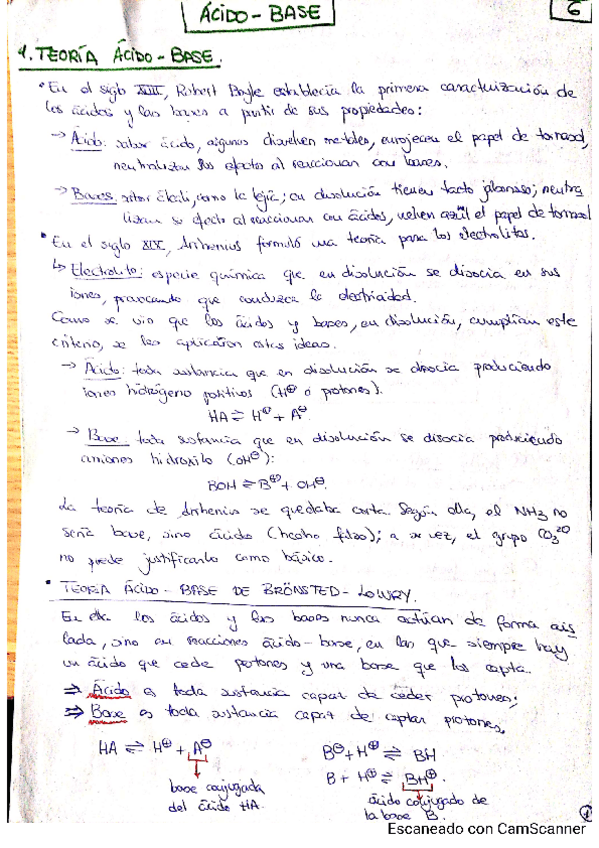 ÁCIDO - BASE
6
1. TEORÍA ÁCIDO - BASE.
• En el siglo XVII, Robert Boyle establecía la primera caracterización de
los ácidos y las bases a partir de sus propiedades:
→ Ácido: sabor ácido, algunos disuelven metales, enrojecen el papel de tornasol,
neutralizan los efectos al reaccionar con bases.
→ Bases: sabor álcali, como la lejía; en disolución tienen tacto jabonoso; neutra
lizan su efecto al reaccionan con ácidos, vuelven azul el papel de tornasol
• En el siglo XIX, Arrhenius formuló una teoría para los electrolitos.
↳ Electrolito: especie química que en disolución se disocia en sus
iones, provocando que conduzca la electricidad.
Como se vio que los ácidos y bases, en disolución, cumplían este
criterio, se les aplicaron estas ideas.
→ Ácido: toda sustancia que en disolución se disocia produciendo
iones hidrógeno positivos (H⊕ o protones).
HA ⇌ H⊕ + A⊖
→ Base: toda sustancia que en disolución se disocia produciendo
aniones hidroxilo (OH⊖):
BOH ⇌ B⊕ + OH⊖.
La teoría de Arrhenius se quedaba corta. Según ella, el NH3 no
sería base, sino ácido (hecho falso); a su vez, el grupo CO₃²⊖
no puede justificarlo como básico.
• TEORÍA ÁCIDO - BASE DE BRÖNSTED - LOWRY.
En ella los ácidos y las bases nunca actúan de forma ais
lada, sino en reacciones ácido - base, en las que siempre hay
un ácido que cede protones y una base que los capta.
⇒ Ácido es toda sustancia capaz de ceder protones;
⇒ Base es toda sustancia capaz de captar protones.
HA ⇌ H⊕ + A⊖
base conjugada
del ácido HA.
B⊖ + H⊕ ⇌ BH
B + H⊕ ⇌ BH⊕.
ácido conjugado de
la base B.
1
Escaneado con CamScanner